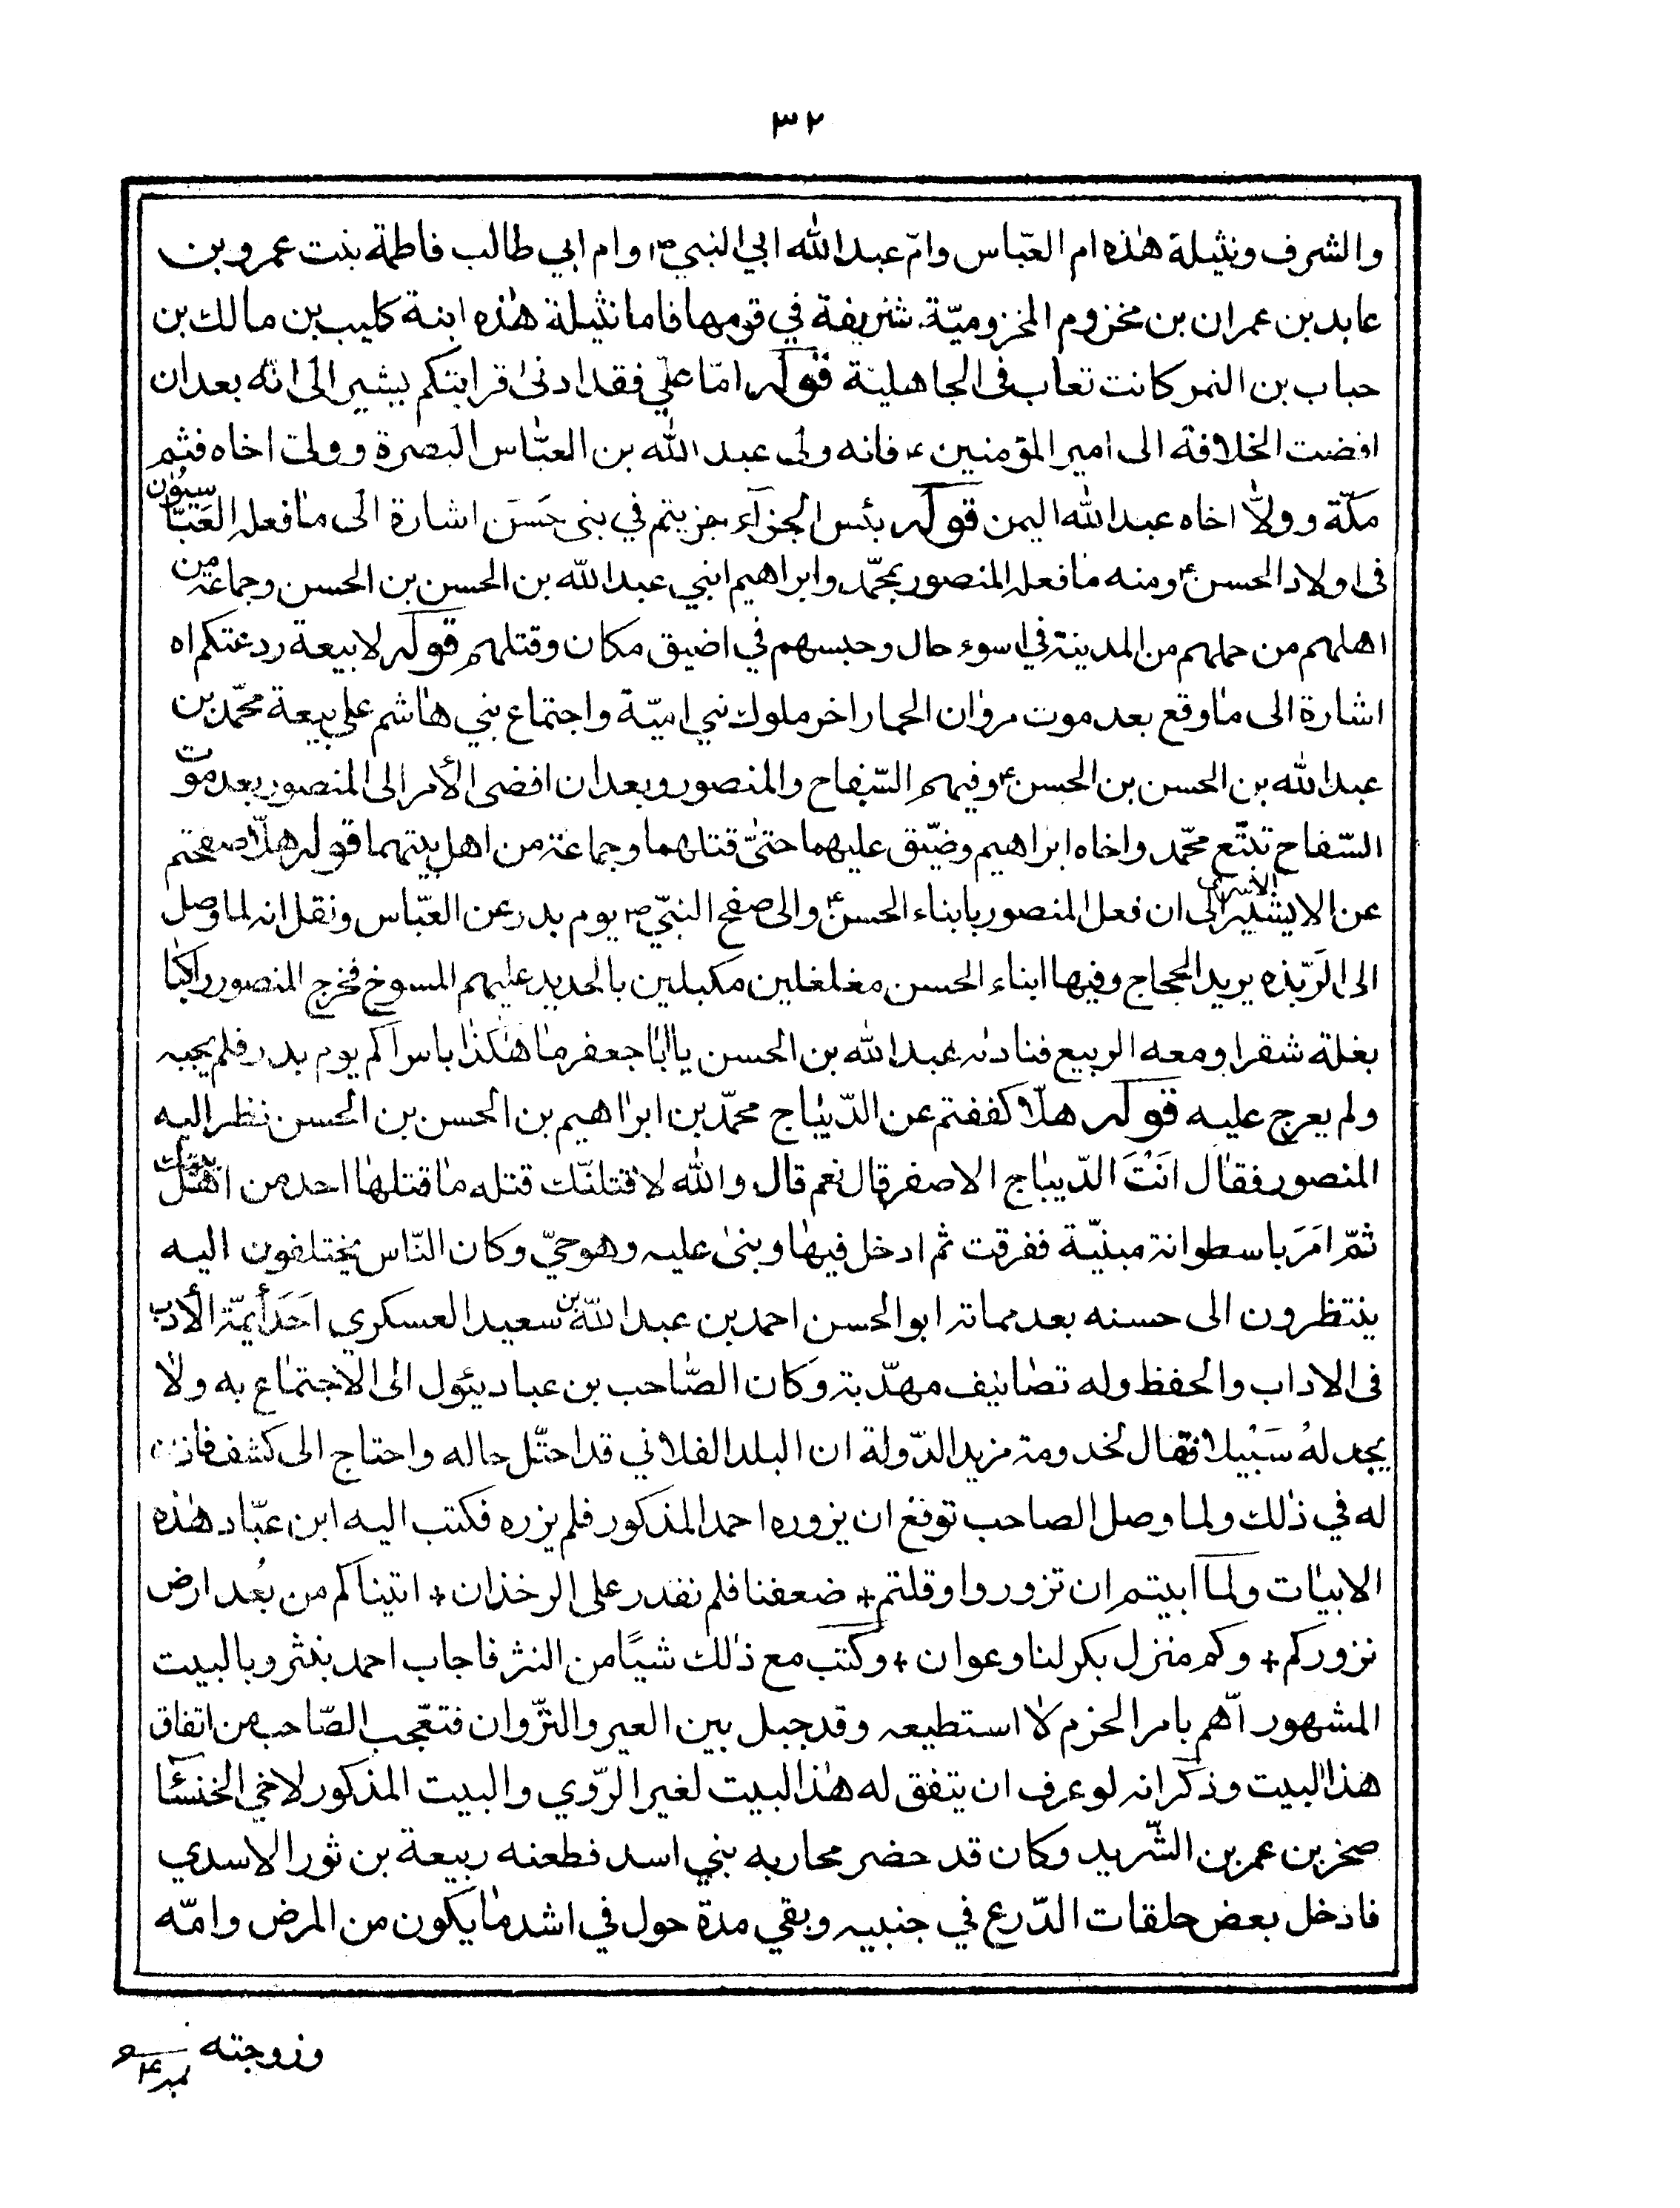 ٣٢
والشرف ونثيلة هٰذه ام العبّاس وامّ عبدالله ابي النبي ص وام ابي طالب فاطمة بنت عمرو بن
عابد بن عمران بن مخزوم المخزوميّة شريفة في قومها فاما نثيلة هٰذه ابنة كليب بن مالك بن
حباب بن النمر كانت تعاب فى الجاهلية قوله امّا علي فقد ادنىٰ قرابتكم يشير الى انّه بعد ان
افضت الخلافة الى امير المؤمنين ع فانه ولى عبد الله بن العبّاس البصرة وولت اخاه قثم
مكّة وولاّ اخاه عبدالله اليمن قوله بئس الجزآء جزيتم في بنى حَسَن اشارة الى مٰا فعله العَبّاسيّون
فى اولاد الحسن ع ومنه مٰا فعله المنصور بمحمّد وابراهيم ابني عبدالله بن الحسن بن الحسن وجماعة من
اهلهم من حملهم من المدينة في اسوء حال وحبسهم في اضيق مكان وقتلهم قوله لا بيعة ردعتكم اه
اشارة الى مٰا وقع بعد موت مروٰان الحمار اخر ملوك بني اميّة واجتماع بني هٰاشم على بيعة محمّد بن
عبدالله بن الحسن بن الحسن ع وفيهم السّفاح والمنصور وبعد ان افضى الأمر الى المنصور بعد موت
السّفاح تتبّع محمّد واخاه ابراهيم وضيّق عليهما حتىّ قتلهما وجماعة من اهل بيتهما قوله هلّا صفحتم
عن الاسرى يشير الى ان فعل المنصور بابناء الحسن ع والى صفح النبيّ ص يوم بدر عن العبّاس ونقل انه لما وصل
الى الَربّذه يريد الحجاج وفيها ابناء الحسن مغلغلين مكبلين بالحديد عليهم المسوخ فخرج المنصور راكبًا
بغلة شقرا ومعه الربيع فناداه عبدالله بن الحسن يا ابٰا جعفر مٰا هٰكذٰا باسراكم يوم بدر فلم يجبه
ولم يعرج عليه قوله هلّا كففتم عن الدّيبٰاج محمّد بن ابرٰاهيم بن الحسن بن الحسن نظر اليه
المنصور فقٰال انَتْ الدّيبٰاج الاصفر قال نعم قال والله لاقتلنّك قتله مٰا قتلهٰا احد من اهل بيتك
ثمّ امَرَ باسطوانة مبنيّة ففرقت ثم ادخل فيهٰا وبنىٰ عليه وهو حيّ وكان النّاس يختلفون اليه
ينتظرون الى حسنه بعد مماته ابو الحسن احمد بن عبد اللّه بن سعيد العسكري احَدَ أيمّة الأدب
فى الاداب والحفظ وله تصٰانيف مهذّبة وكان الصّٰاحب بن عباد يئول الى الاجتمٰاع به ولاٰ
يجد لهُ سَبْيلا فقال لخدومة مزيد الدّولة ان البلد الفلاني قد اختّل حاله واحتاج الى كشف فاذن
له في ذٰلك ولما وصل الصاحب توقع ان يزوره احمد المذكور فلم يزره فكتب اليه ابن عبّاد هٰذه
الابيٰات ولمّا ابيتم ان تزوروا وقلتم + ضعفنا فلم نقدر على الرخذان + اتيناكم من بُعد ارض
نزوركم + وكم منزل بكر لنا وعوان + وكتب مع ذٰلك شيًا من النثر فاجاب احمد بنثر وبالبيت
المشهور اهم بامر الحزم لاٰ استطيعه وقد جبل بين العير والنزّوان فتعّجب الصّاحب من اتفاق
هذا البيت وذكر انه لو عرف ان يتفق له هٰذا البيت لغير الرّوي والبيت المذكور لاخي الخنسٓا
صخر بن عمر بن الشّريد وكان قد حضر محاربه بني اسد فطعنه ربيعة بن ثور الاسدي
فادخل بعض حلقات الدّرع في جنبيه وبقي مدة حول في اشد مٰا يكون من المرض وامّه
وزوجته